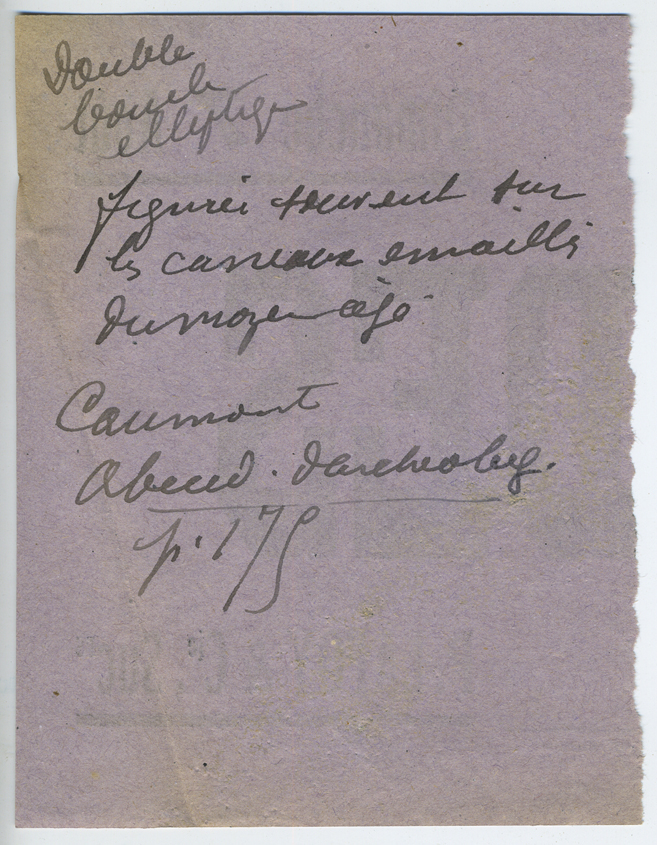 Double
boucle
elliptiqu
figurés souvent sur
les carreaux emaillés
du moyen âge
Caumont
Abecd. d'archeolog.
p. 175